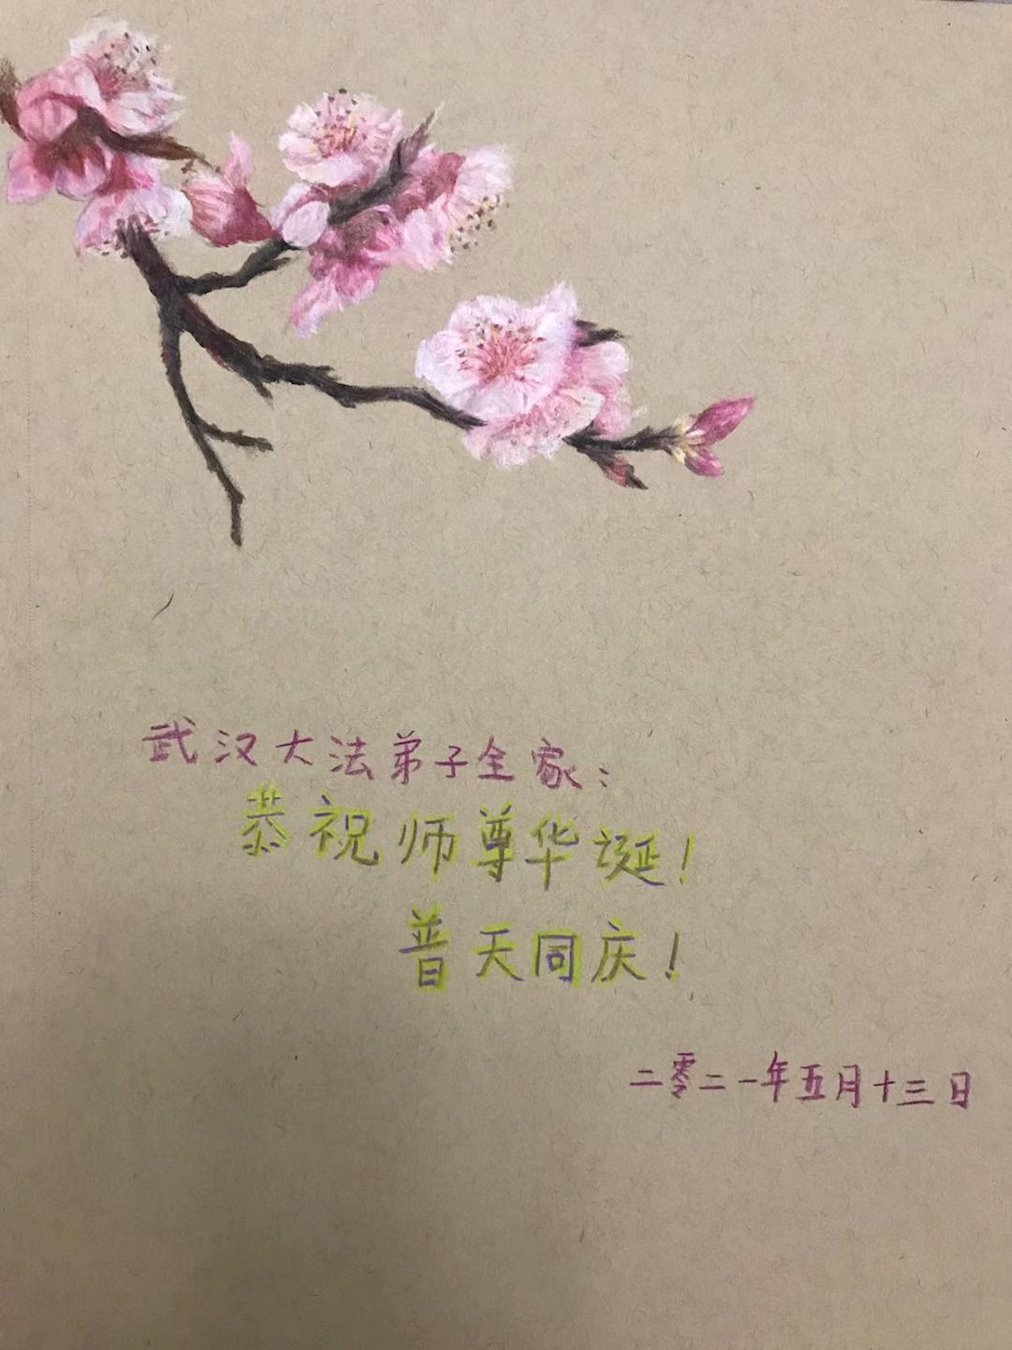 武汉大法弟子全家：
恭祝师尊华诞！
普天同庆！
二零二一年五月十三日